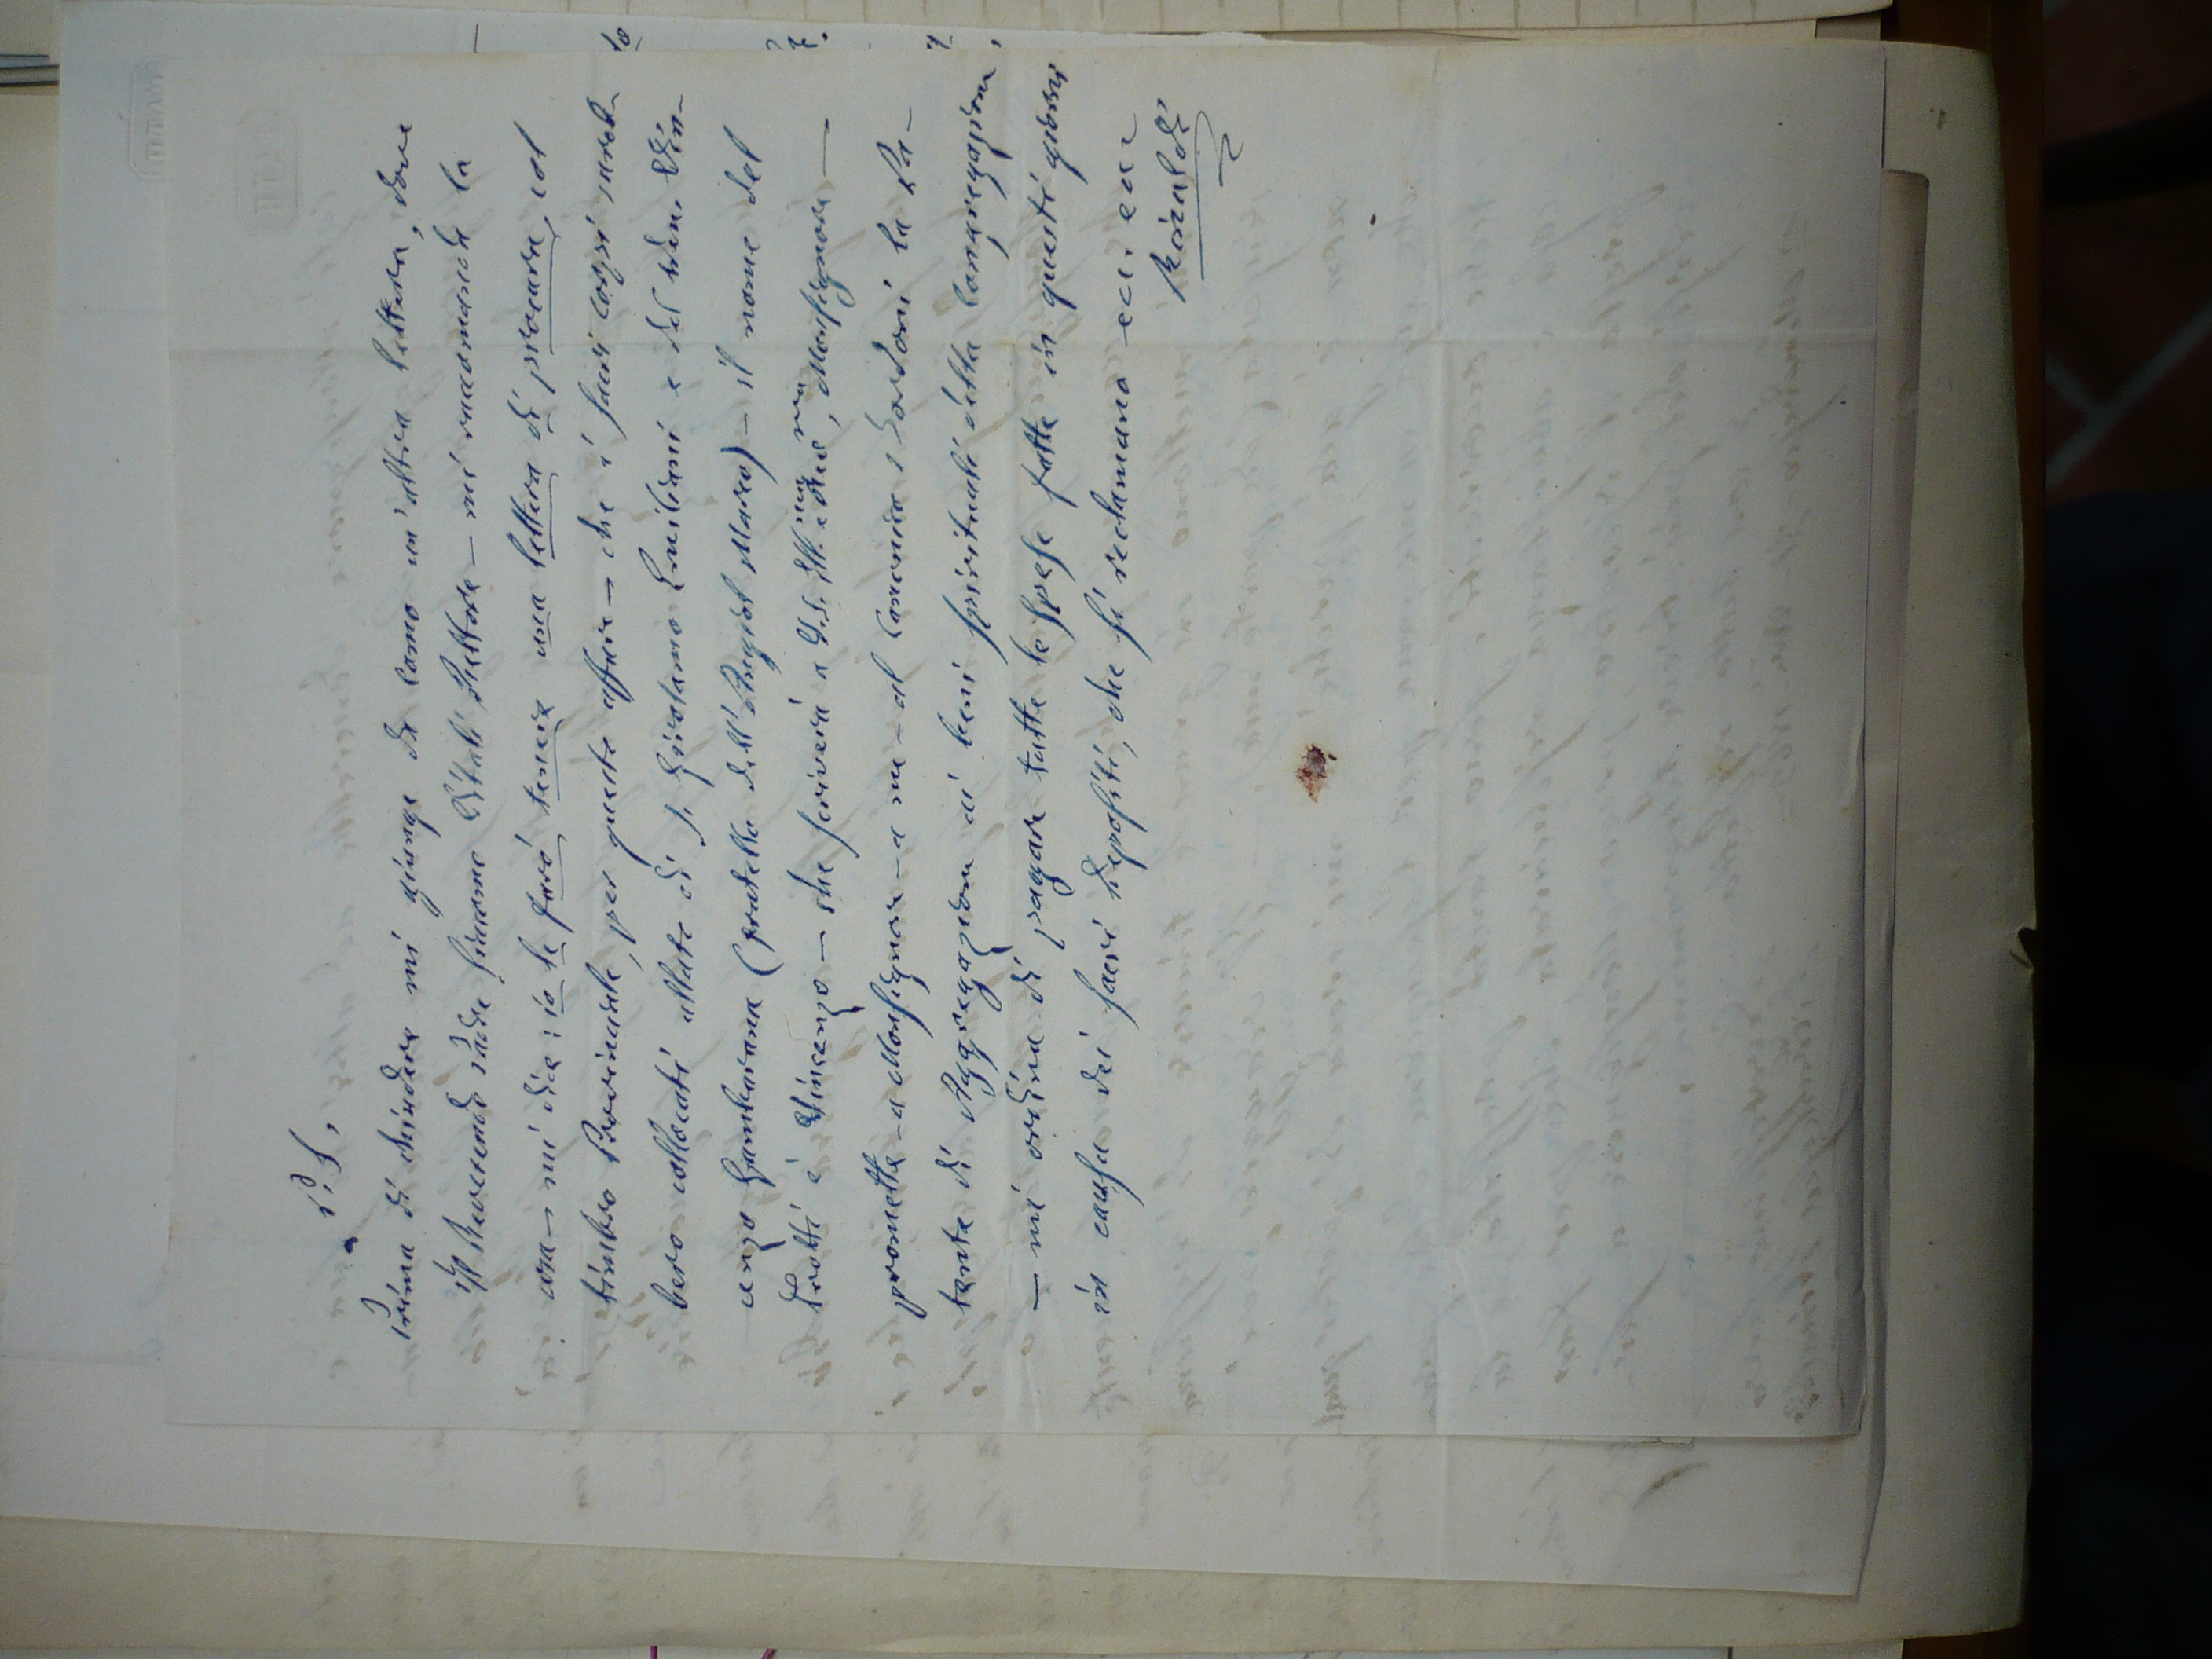 P. S.
Prima di chiudere mi giunge da Como un'altra lettera, dove
il Reverendo Padre Simone Vitali Rettore – mi raccomanda la
cosa – mi dice: io le farò tenere una lettera di procura, col
timbro Provinciale, per questo affare – che i sacri corpi sareb-
bero collocati allato di S. Girolamo Emiliani e del Ven. Vin-
cenzo Gambarana (fratello dell'Angiol Marco) – il nome del
è Vincenzo – che scriverà a V. S. Ill.ma e Rma, Monsignore –
promette – a Monsignore – a me – al Canonico Bordoni la Pa-
tente di Aggregazione ai beni spirituali della Congregazione,
– mi ordina di pagare tutte le spese fatte in questi giorni
in causa dei sacri depositi, che si reclamano ecc. ecc.
Rinaldi